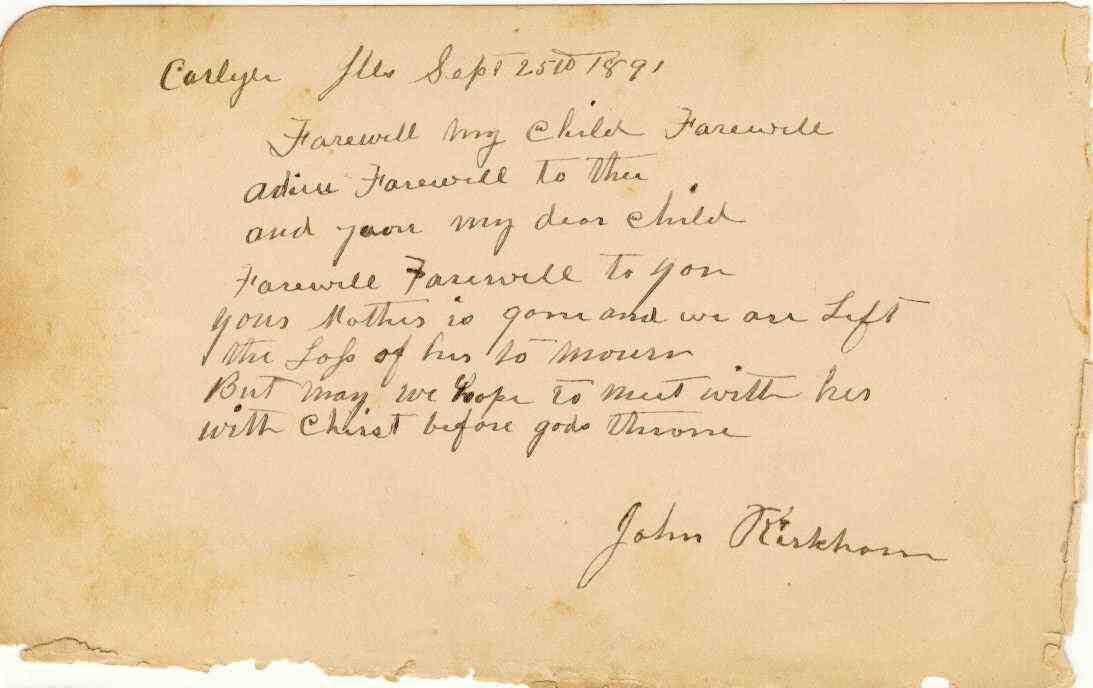 Carlyle Ills Sept 25th 1891
Farewell my Child Farewell
adieu Farewell to thee
and my dear Child
Farewell Farewell to you
your Mother is gone and we are Left
the Loss of her to mourn
But may we hope to meet with her
with Christ before gods throne
John Kirkham